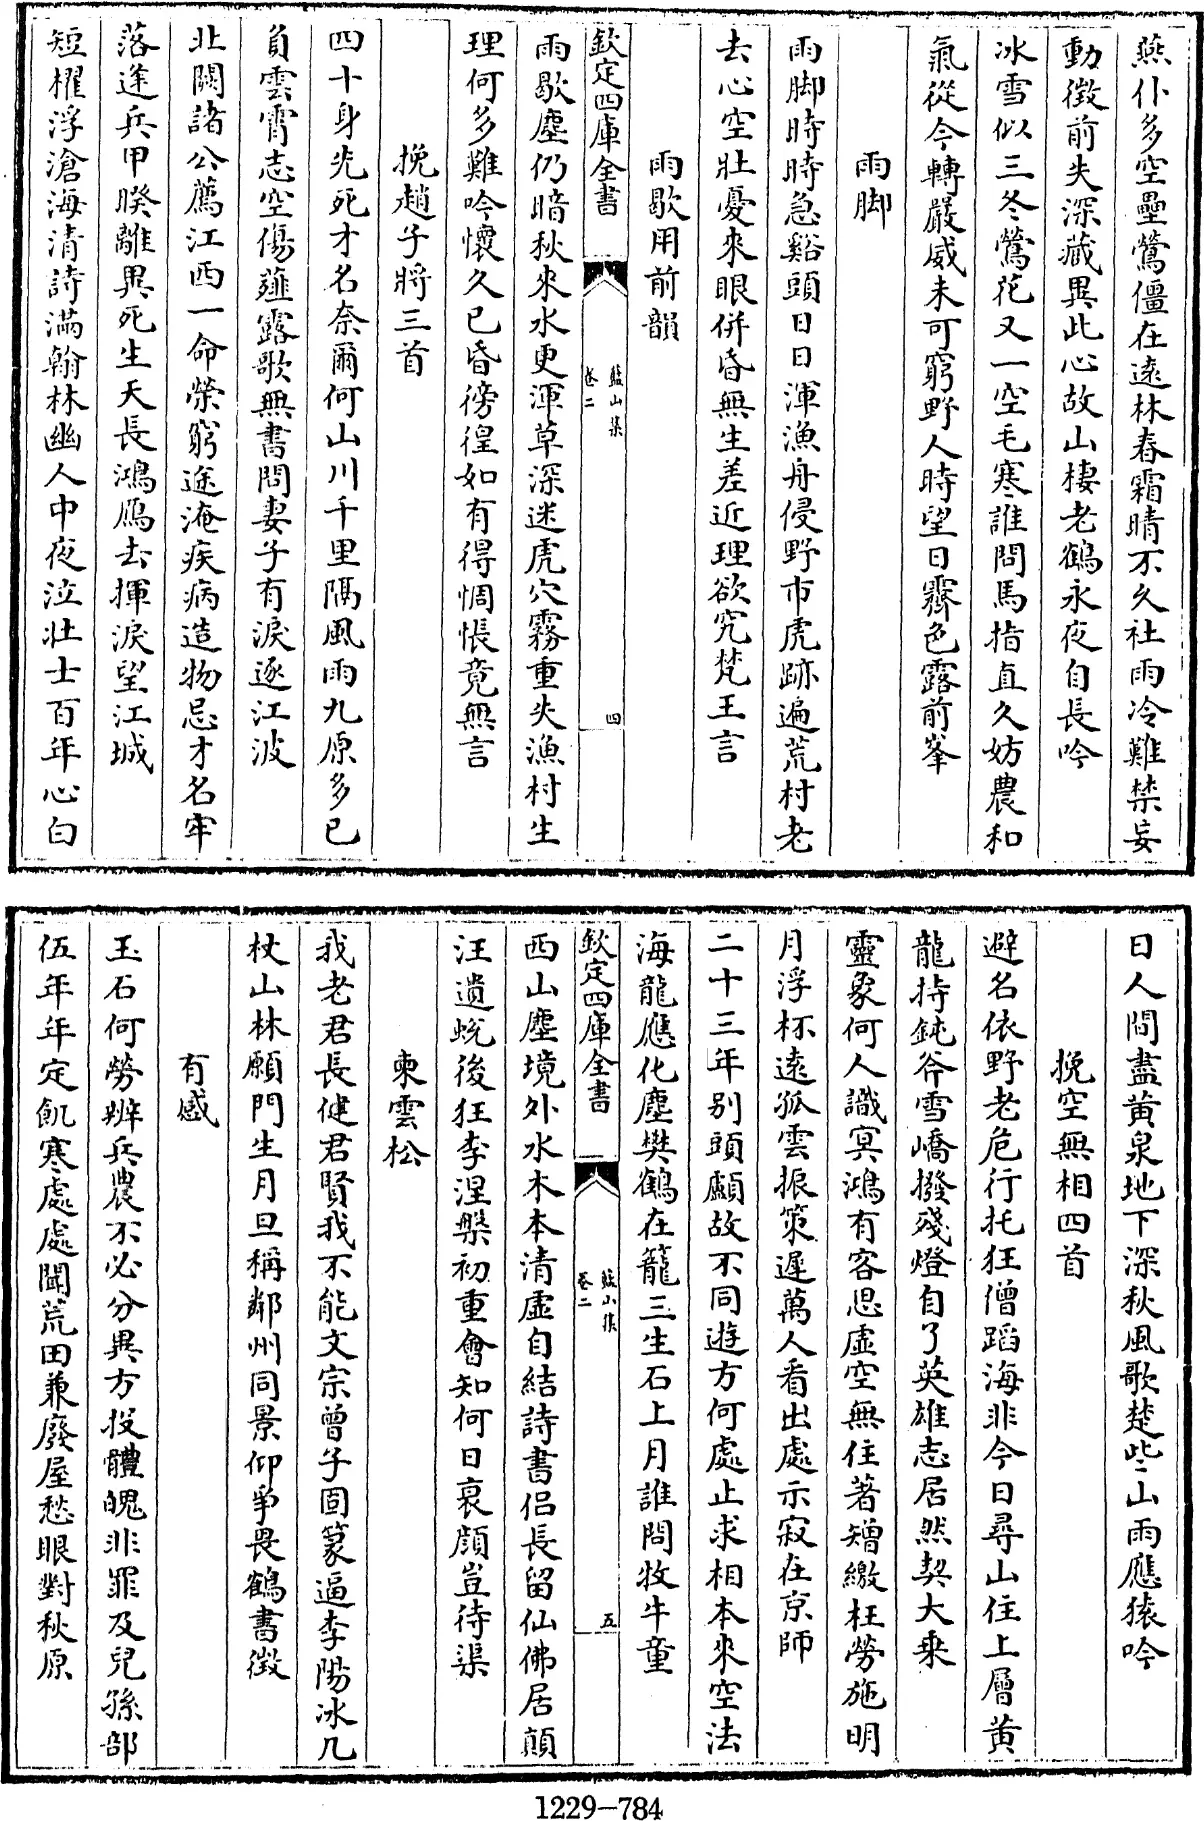 燕仆多空壘鶯僵在遠林春霜晴不久社雨冷難禁妄
動徵前失深藏異此心故山棲老鶴永夜自長吟
冰雪似三冬鶯花又一空毛寒誰問馬指直久妨農和
氣從今轉嚴威未可窮野人時望日霽色露前峯
雨脚
雨脚時時急谿頭日日渾漁舟侵野市虎跡遍荒村老
去心空壯憂來眼併昏無生差近理欲究梵王言
雨歇用前韻
欽定四庫全書
藍山集
卷二
四
雨歇塵仍暗秋來水更渾草深迷虎穴霧重失漁村生
理何多難吟懷久已昏徬徨如有得惆悵竟無言
挽趙子將三首
四十身先死才名奈爾何山川千里隔風雨九原多已
負雲霄志空傷薤露歌無書問妻子有淚逐江波
北闕諸公薦江西一命榮窮途淹疾病造物忌才名牢
落逢兵甲睽離異死生天長鴻鴈去揮淚望江城
短櫂浮滄海清詩滿翰林幽人中夜泣壯士百年心白
日人間盡黃泉地下深秋風歌楚些山雨應猿吟
挽空無相四首
避名依野老危行托狂僧蹈海非今日尋山住上層黄
龍持鈍斧雪嶠撥殘燈自了英雄志居然契大乗
靈象何人識冥鴻有客思虛空無住著矰繳枉勞施明
月浮杯遠孤雲振策遲萬人看出處示寂在京師
二十三年别頭顱故不同遊方何處止求相本來空法
海龍應化塵樊鶴在籠三生石上月誰問牧牛童
欽定四庫全書
藍山集
卷二
五
西山塵境外水木本清虛自結詩書侣長留仙佛居顛
汪遺蛻後狂李涅槃初重會知何日衰顔豈待渠
柬雲松
我老君長健君賢我不能文宗曾子固篆逼李陽冰几
杖山林願門生月旦稱鄰州同景仰爭畏鶴書徵
有感
玉石何勞辨兵農不必分異方投體魄非罪及兒孫部
伍年年定飢寒處處聞荒田兼廢屋愁眼對秋原
1229-784